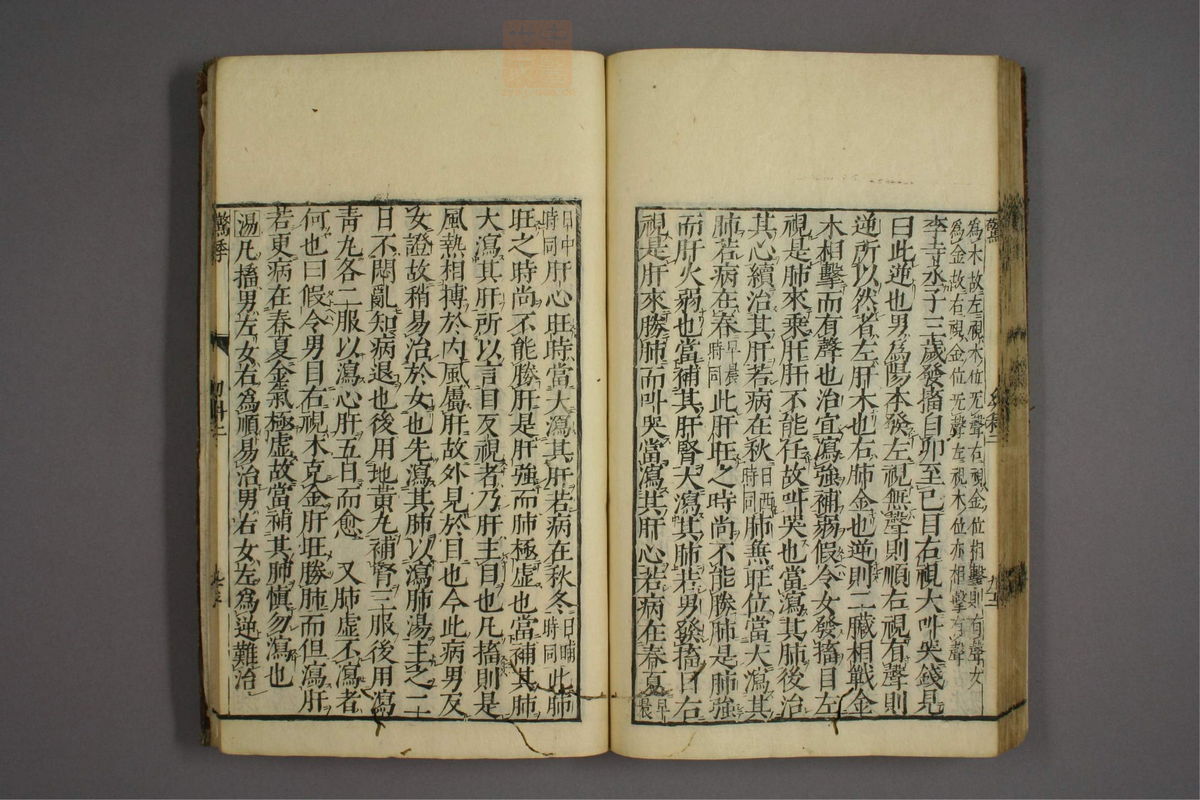 爲木故左視木位无聲右視金位相擊則有聲女
爲金故右視金位无聲左視木位亦相擊有聲
李寺丞子三歲發搐自卯至巳目右視大叫哭錢見
曰此逆也男爲陽本發左視無聲則順右視有聲則
逆所以然者左肝木也右肺金也逆則二臟相戰金
木相擊而有聲也治宜瀉強補弱假令女發搐目左
視是肺來乘肝肝不能任故叫哭也當瀉其肺後治
其心續治其肝若病在秋日西時同肺無旺位當大瀉其
肺若病在春早晨時同此肝旺之時尚不能勝肺是肺強
而肝火弱也當補其肝腎大瀉其肺若男發搐目右
視是肝來勝肺而叫哭當瀉其肝心若病在春夏早晨
日中時同肝心旺時當大瀉其肝若病在秋冬日晡時同此肺
旺之時尚不能勝肝是肝強而肺極虛也當補其肺
大瀉其肝所以言目反視者乃肝主目也凡搐則是
風熱相搏於內風屬肝故外見於目也今此病男反
女證故稍易治於女也先瀉其肺以瀉肺湯主之二
日不悶亂知病退也後用地黃丸補腎三服後用瀉
青丸各二服以瀉心肝五日而愈 又肺虛不瀉者
何也曰假令男目右視木克金肝旺勝肺而但瀉肝
若更病在春夏金氣極虛故當補其肺慎勿瀉也
湯凡搐男左女右爲順易治男右女左爲逆難治